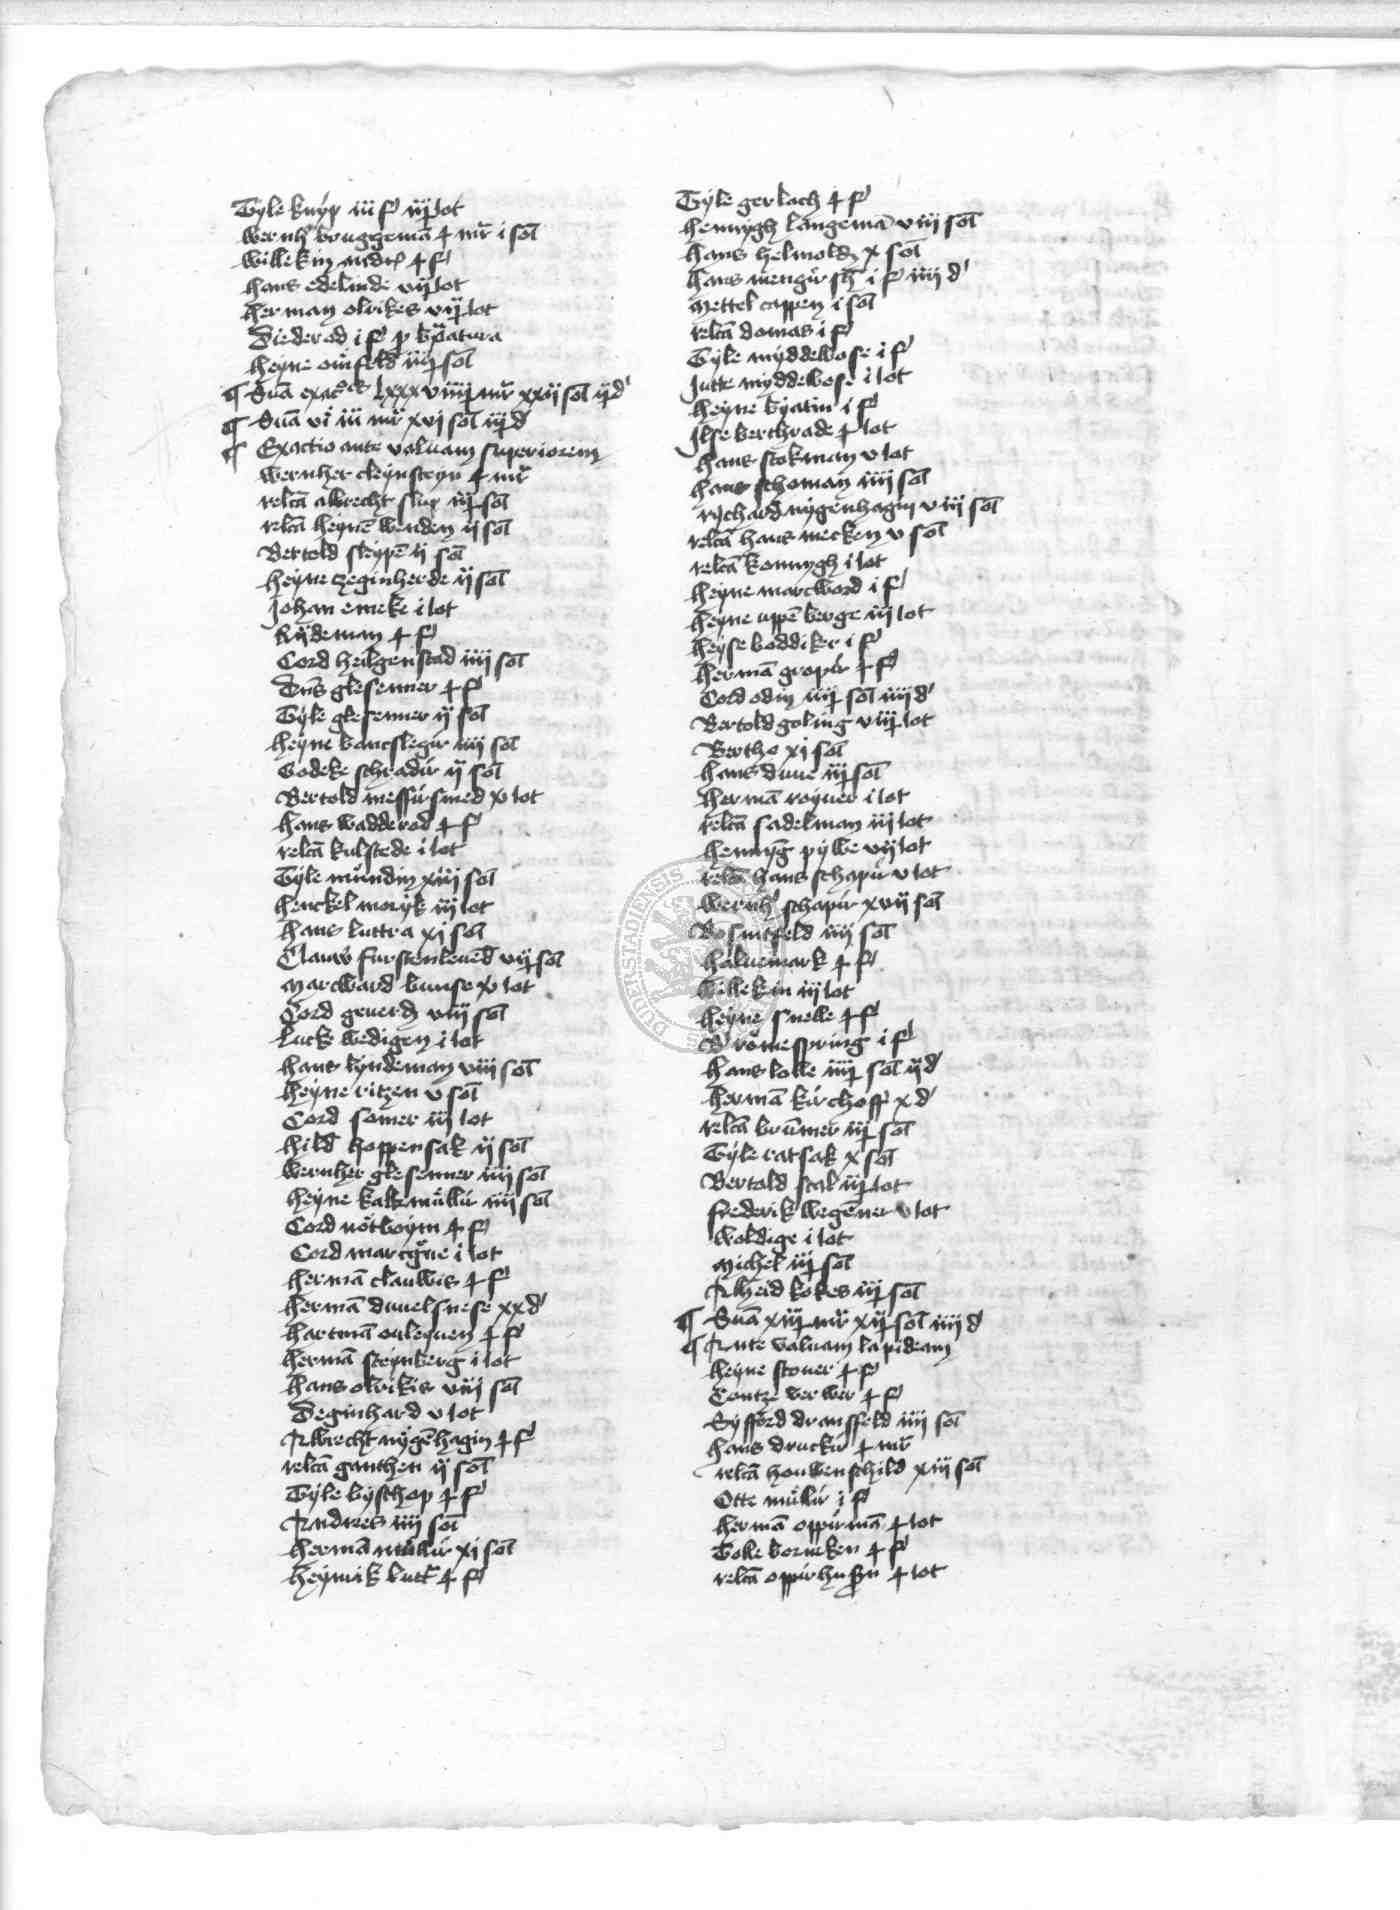 Tyle knyp iii f iij lot
wernh bruggemā mr i sol
willekin andr f
hans edelinde vij lot
herman olrikes vij lot
Diederod i f p
heyne sol
¶ Sūa exac lxxxviiij mr xxij sol ij d
¶ Sūa vi iii mr xvi sol iij d
¶ Exactio ante valvam superiorem
wernher cleynsteyn mr
relcā albrecht slup iij sol
relcā heynē wenden ij sol
Bertold sleypē ij sol
heyne czeginherde ij sol
Johan emeke i lot
Rydeman f
Cord heilgenstad iiij sol
Dns glesener f
Tyle glesener ij sol
heyne banslegir iiij sol
Godeke schradir ij sol
Bertold messirsmed xv lot
hans wadderod f
relcā kulstede i lot
Tyle mundin xiij sol
henckel moryk iij lot
hans luttra xi sol
Clauw furstenleued vij sol
marcward bunse xv lot
Cord geuerd viij sol
Lucke wedigen i lot
hans lyndeman viii sol
heyne ritzen v sol
Cord somer iij lot
hild hoppensak ij sol
wernher glesener iiij sol
heyne kalkmullir iiij sol
Cord notboym f
Cord marcgue i lot
hermā clauwis f
hermā duuelsnese xx d
hartmā ouleyuen f
hermā steynberg i lot
hans olrikis viij sol
Deginhard v lot
Albrecht nygēhagin f
relcā ganthen ij sol
Tyle byschop f
Andres iiij sol
hermā mullir xi sol
heynrik lutt f
Tyle gerlach f
hennygh langemā viij sol
hans helmold x sol
hans mengirsh i f iiij d
mettel cappen i sol
relcā domas i f
Tyle myddewose i f
Jutte myddewose i lot
heyne byatin i f
Ilse berthrade lot
hans stokman v lot
hans schoman iiij sol
rychard nygenhagin viij sol
relcā hans mecken v sol
relcā konnygh i lot
heyne marcword i f
heyne uppē berge iij lot
heyse boddiker i f
hermā gropir f
Cord odin iiij sol iiij d
Bertold goling viij lot
Bertho xi sol
hans duue iij sol
hermā royuer i lot
relcā sadelman iij lot
hennyg pylbe vij lot
relcā hans schapir v lot
wernh schapir xvij sol
Bosintfeld iiij sol
haluemark f
willekin iij lot
heyne snelle f
Bromespring i f
hans lolle iiij sol ij d
hermā kirchoff x d
relcā brumer iij sol
Tyle ratsak x sol
Bertold stal iij lot
frederik wegēner v lot
woldige i lot
michel iij sol
Alheid kokes iij sol
¶ Sūa xiij mr xij sol iiij d
¶ Ante valvam lapideam
heyne stouer f
Contze verwer f
Syfferd dransfeld iiij sol
hans druckir mr
relcā houwenschild xiij sol
Otte mullir i f
hermā oppirmā lot
Tolle borneken f
relcā oppirhusen lot
DUDERSTADIENSIS